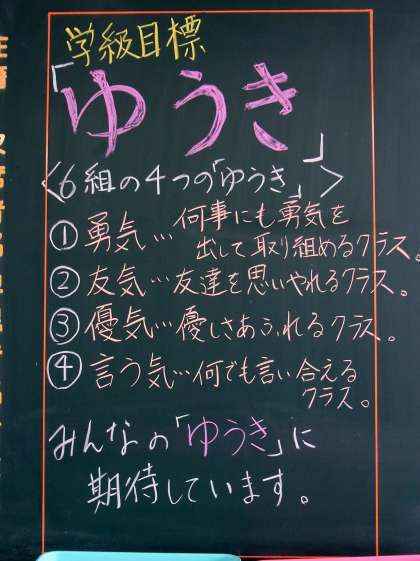 学級目標
「ゆうき」
〈6組の4つの「ゆうき」〉
① 勇気…何事にも勇気を
出して取り組めるクラス。
② 友気…友達を思いやれるクラス。
③ 優気…優しさあふれるクラス。
④ 言う気…何でも言い合える
クラス。
みんなの「ゆうき」に
期待しています。